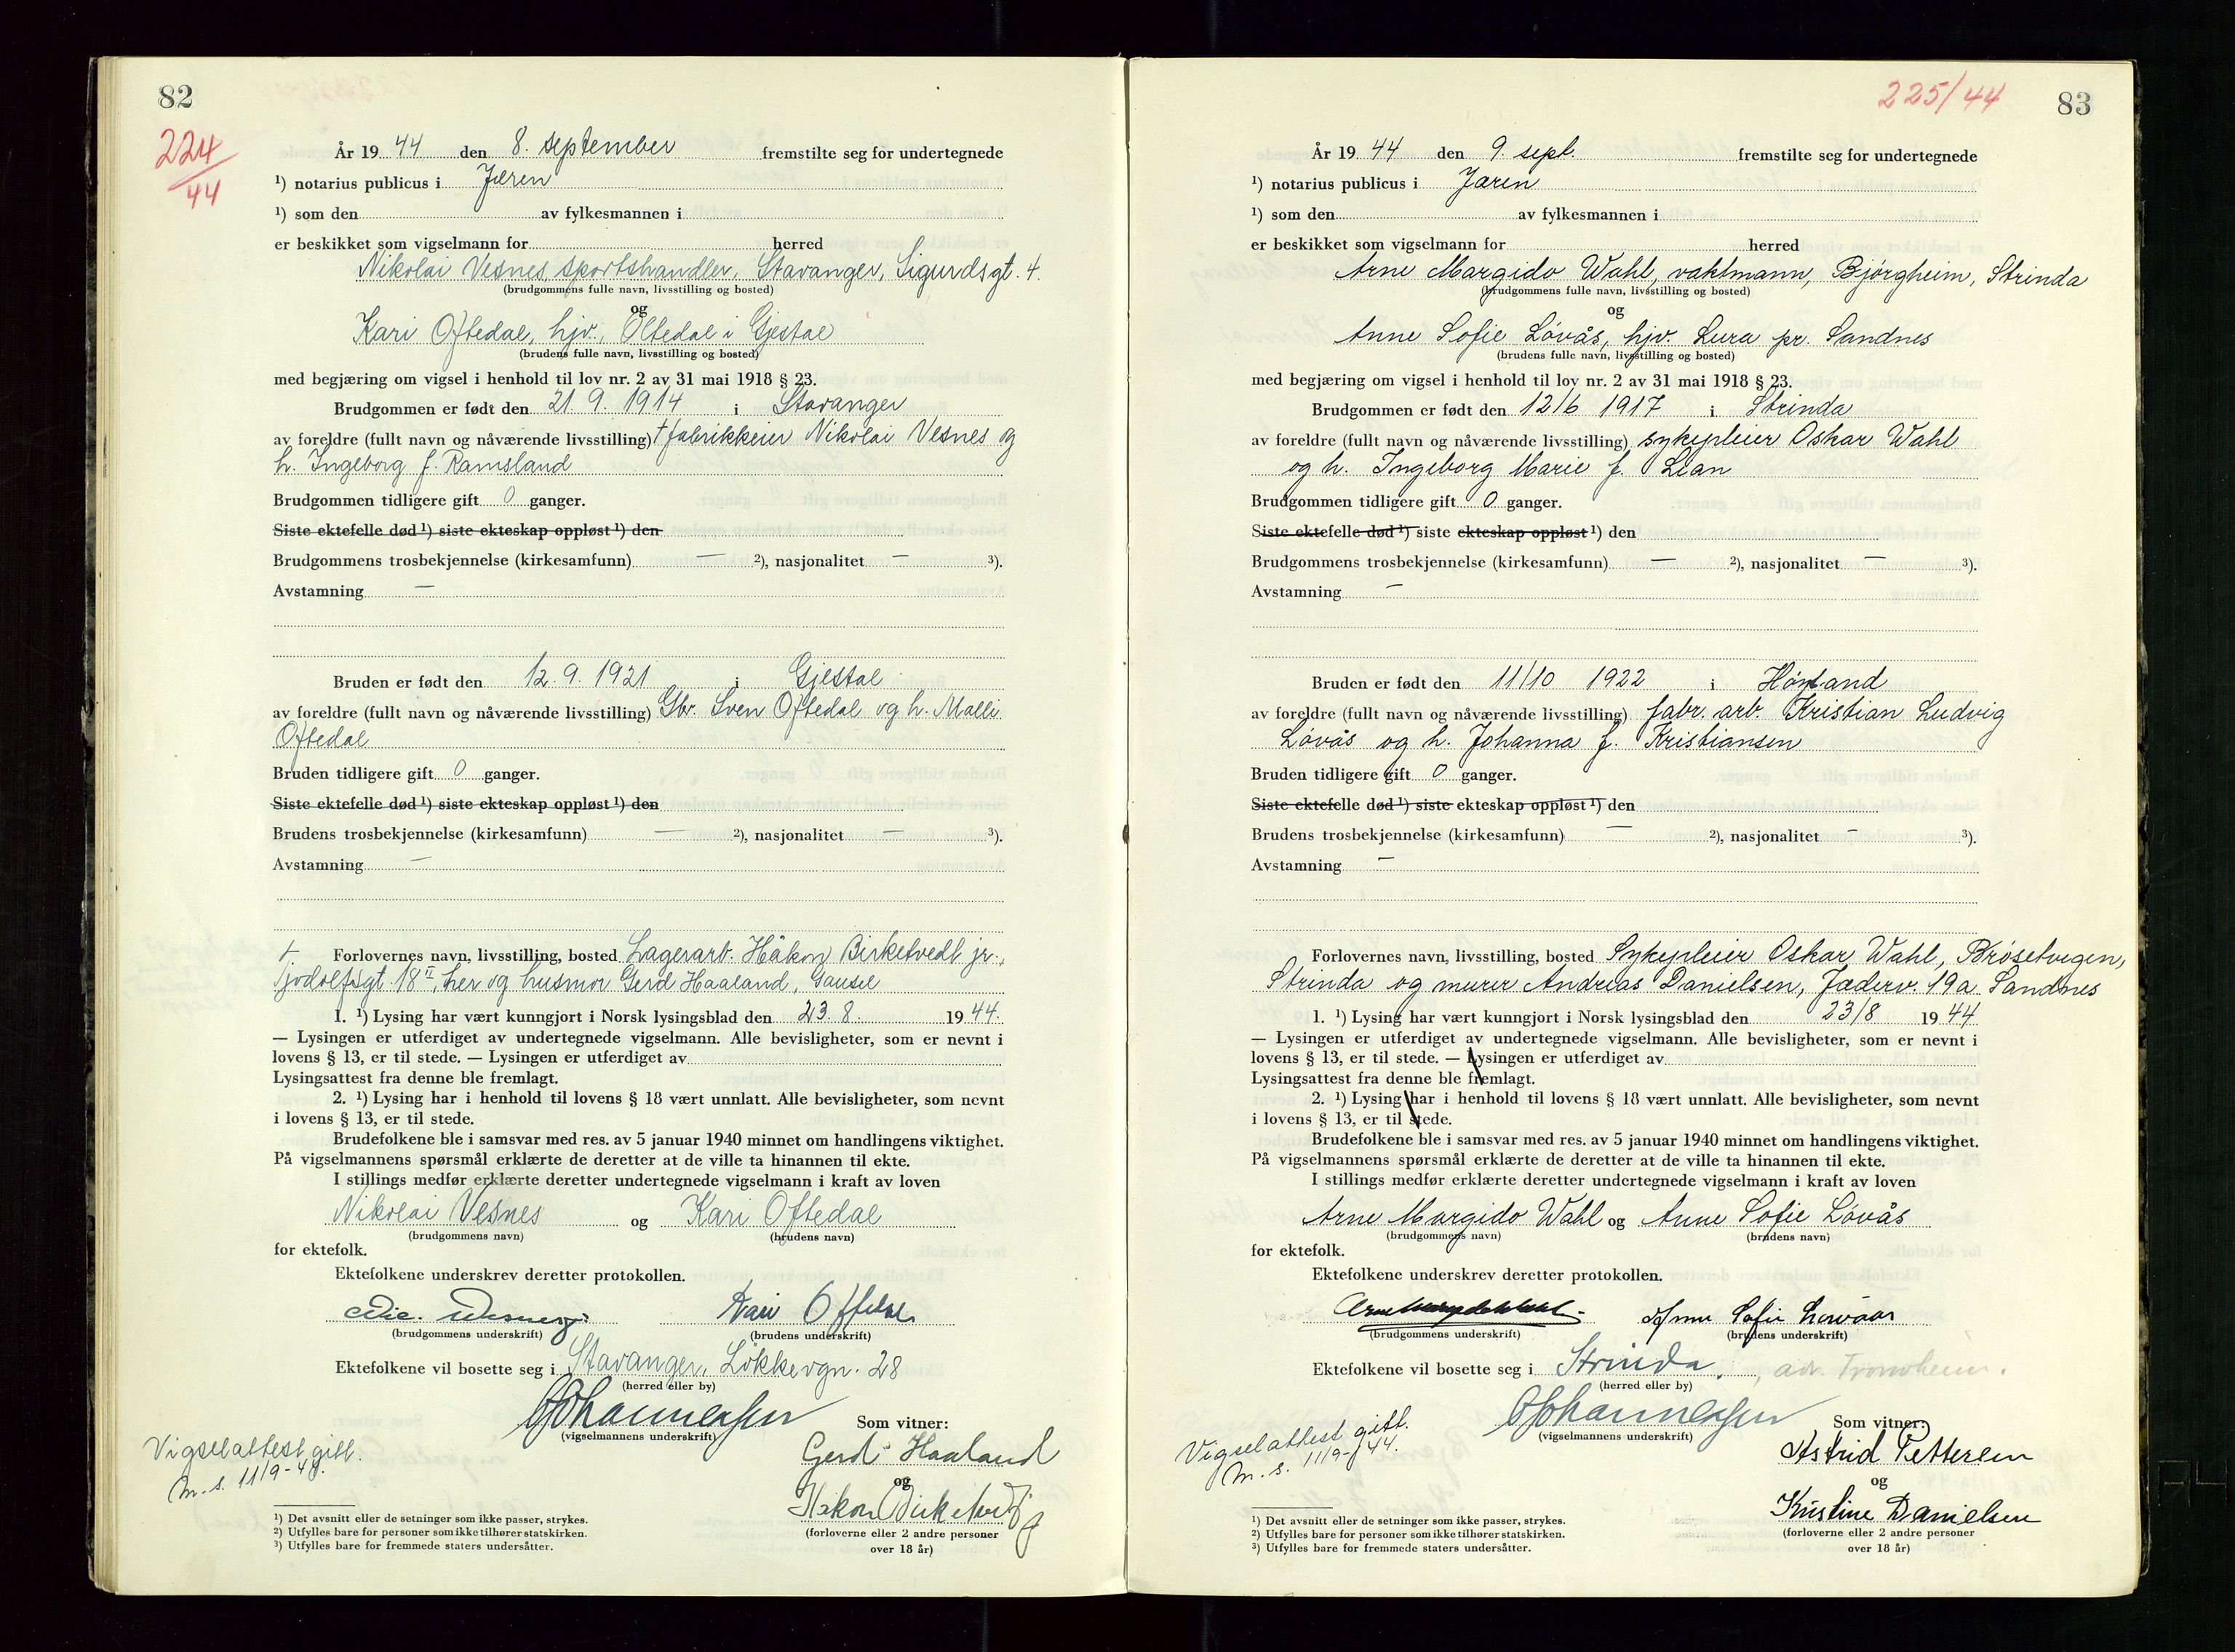 82
224/44
År 19 44 den 8. september fremstilte seg for undertegnede
¹) notarius publicus i Jæren
¹) som den av fylkesmannen i
er beskikket som vigselmann for herred
Nikolai Vesnes, sportshandler, Stavanger, Sigurdsgt. 4.
(brudgommens fulle navn, livsstilling og bosted)
og
Kari Oftedal, hjv., Oltedal i Gjestal
(brudens fulle navn, livsstilling og bosted)
med begjæring om vigsel i henhold til lov nr. 2 av 31 mai 1918 § 23.
Brudgommen er født den 21. 9. 1914 i Stavanger
av foreldre (fullt navn og nåværende livsstilling) † fabrikkeier Nikolai Vesnes og
h. Ingeborg f. Ramsland
Brudgommen tidligere gift 0 ganger.
Siste ektefelle død ¹) siste ekteskap oppløst ¹) den
Brudgommens trosbekjennelse (kirkesamfunn) — ²), nasjonalitet — ³).
Avstamning —
Bruden er født den 12. 9. 1921 i Gjestal
av foreldre (fullt navn og nåværende livsstilling) Gbr. Sven Oftedal og h. Malli
Oftedal
Bruden tidligere gift 0 ganger.
Siste ektefelle død ¹) siste ekteskap oppløst ¹) den
Brudens trosbekjennelse (kirkesamfunn) — ²), nasjonalitet — ³).
Avstamning —
Forlovernes navn, livsstilling, bosted Lagerarb. Håkon Birketvedt jr.,
Tjodolfsgt 18 II, her og husmor Gerd Haaland, Gausel
1. ¹) Lysing har vært kunngjort i Norsk lysingsblad den 23. 8. 19 44.
— Lysingen er utferdiget av undertegnede vigselmann. Alle bevisligheter, som er nevnt i
lovens § 13, er til stede. — Lysingen er utferdiget av
Lysingsattest fra denne ble fremlagt.
2. ¹) Lysing har i henhold til lovens § 18 vært unnlatt. Alle bevisligheter, som nevnt
i lovens § 13, er til stede.
Brudefolkene ble i samsvar med res. av 5 januar 1940 minnet om handlingens viktighet.
På vigselmannens spørsmål erklærte de deretter at de ville ta hinannen til ekte.
I stillings medfør erklærte deretter undertegnede vigselmann i kraft av loven
Nikolai Vesnes og Kari Oftedal
(brudgommens navn) (brudens navn)
for ektefolk.
Ektefolkene underskrev deretter protokollen.
Kari Oftedal
(brudgommens underskrift) (brudens underskrift)
Ektefolkene vil bosette seg i Stavanger, Lökkevgn. 28
(herred eller by)
Johannessen
(vigselmannens underskrift)
Som vitner:
Gerd Haaland
og
Håkon Birketvedt jr
(forloverne eller 2 andre personer
over 18 år)
Vigselattest gitt.
M. s. 11/9-44.
¹) Det avsnitt eller de setninger som ikke passer, strykes.
²) Utfylles bare for personer som ikke tilhører statskirken.
³) Utfylles bare for fremmede staters undersåtter.
225/44 83
År 19 44 den 9. sept. fremstilte seg for undertegnede
¹) notarius publicus i Jæren
¹) som den av fylkesmannen i
er beskikket som vigselmann for herred
Arne Margido Wahl, vaktmann, Bjørgheim, Strinda
(brudgommens fulle navn, livsstilling og bosted)
og
Anne Sofie Lövås, hjv. Lura pr. Sandnes
(brudens fulle navn, livsstilling og bosted)
med begjæring om vigsel i henhold til lov nr. 2 av 31 mai 1918 § 23.
Brudgommen er født den 12/6 1917 i Strinda
av foreldre (fullt navn og nåværende livsstilling) sykepleier Oskar Wahl
og h. Ingeborg Marie f. Lian
Brudgommen tidligere gift 0 ganger.
Siste ektefelle død ¹) siste ekteskap oppløst ¹) den
Brudgommens trosbekjennelse (kirkesamfunn) — ²), nasjonalitet — ³).
Avstamning —
Bruden er født den 11/10 1922 i Høyland
av foreldre (fullt navn og nåværende livsstilling) fabr. arb. Kristian Ludvig
Lövås og h. Johanna f. Kristiansen
Bruden tidligere gift 0 ganger.
Siste ektefelle død ¹) siste ekteskap oppløst ¹) den
Brudens trosbekjennelse (kirkesamfunn) — ²), nasjonalitet — ³).
Avstamning —
Forlovernes navn, livsstilling, bosted Sykepleier Oskar Wahl, Brøsetvegen,
Strinda og murer Andreas Danielsen, Jæderv. 19a Sandnes
1. ¹) Lysing har vært kunngjort i Norsk lysingsblad den 23/8 19 44
— Lysingen er utferdiget av undertegnede vigselmann. Alle bevisligheter, som er nevnt i
lovens § 13, er til stede. — Lysingen er utferdiget av
Lysingsattest fra denne ble fremlagt.
2. ¹) Lysing har i henhold til lovens § 18 vært unnlatt. Alle bevisligheter, som nevnt
i lovens § 13, er til stede.
Brudefolkene ble i samsvar med res. av 5 januar 1940 minnet om handlingens viktighet.
På vigselmannens spørsmål erklærte de deretter at de ville ta hinannen til ekte.
I stillings medfør erklærte deretter undertegnede vigselmann i kraft av loven
Arne Margido Wahl og Anne Sofie Lövås
(brudgommens navn) (brudens navn)
for ektefolk.
Ektefolkene underskrev deretter protokollen.
Arne Margido Wahl. Anne Sofie Lovaas
(brudgommens underskrift) (brudens underskrift)
Ektefolkene vil bosette seg i Strinda, adr. Trondheim.
(herred eller by)
Johannessen
(vigselmannens underskrift)
Som vitner:
Astrid Pettersen
og
Kristine Danielsen
(forloverne eller 2 andre personer
over 18 år)
Vigselattest gitt.
M. s. 11/9-44.
¹) Det avsnitt eller de setninger som ikke passer, strykes.
²) Utfylles bare for personer som ikke tilhører statskirken.
³) Utfylles bare for fremmede staters undersåtter.